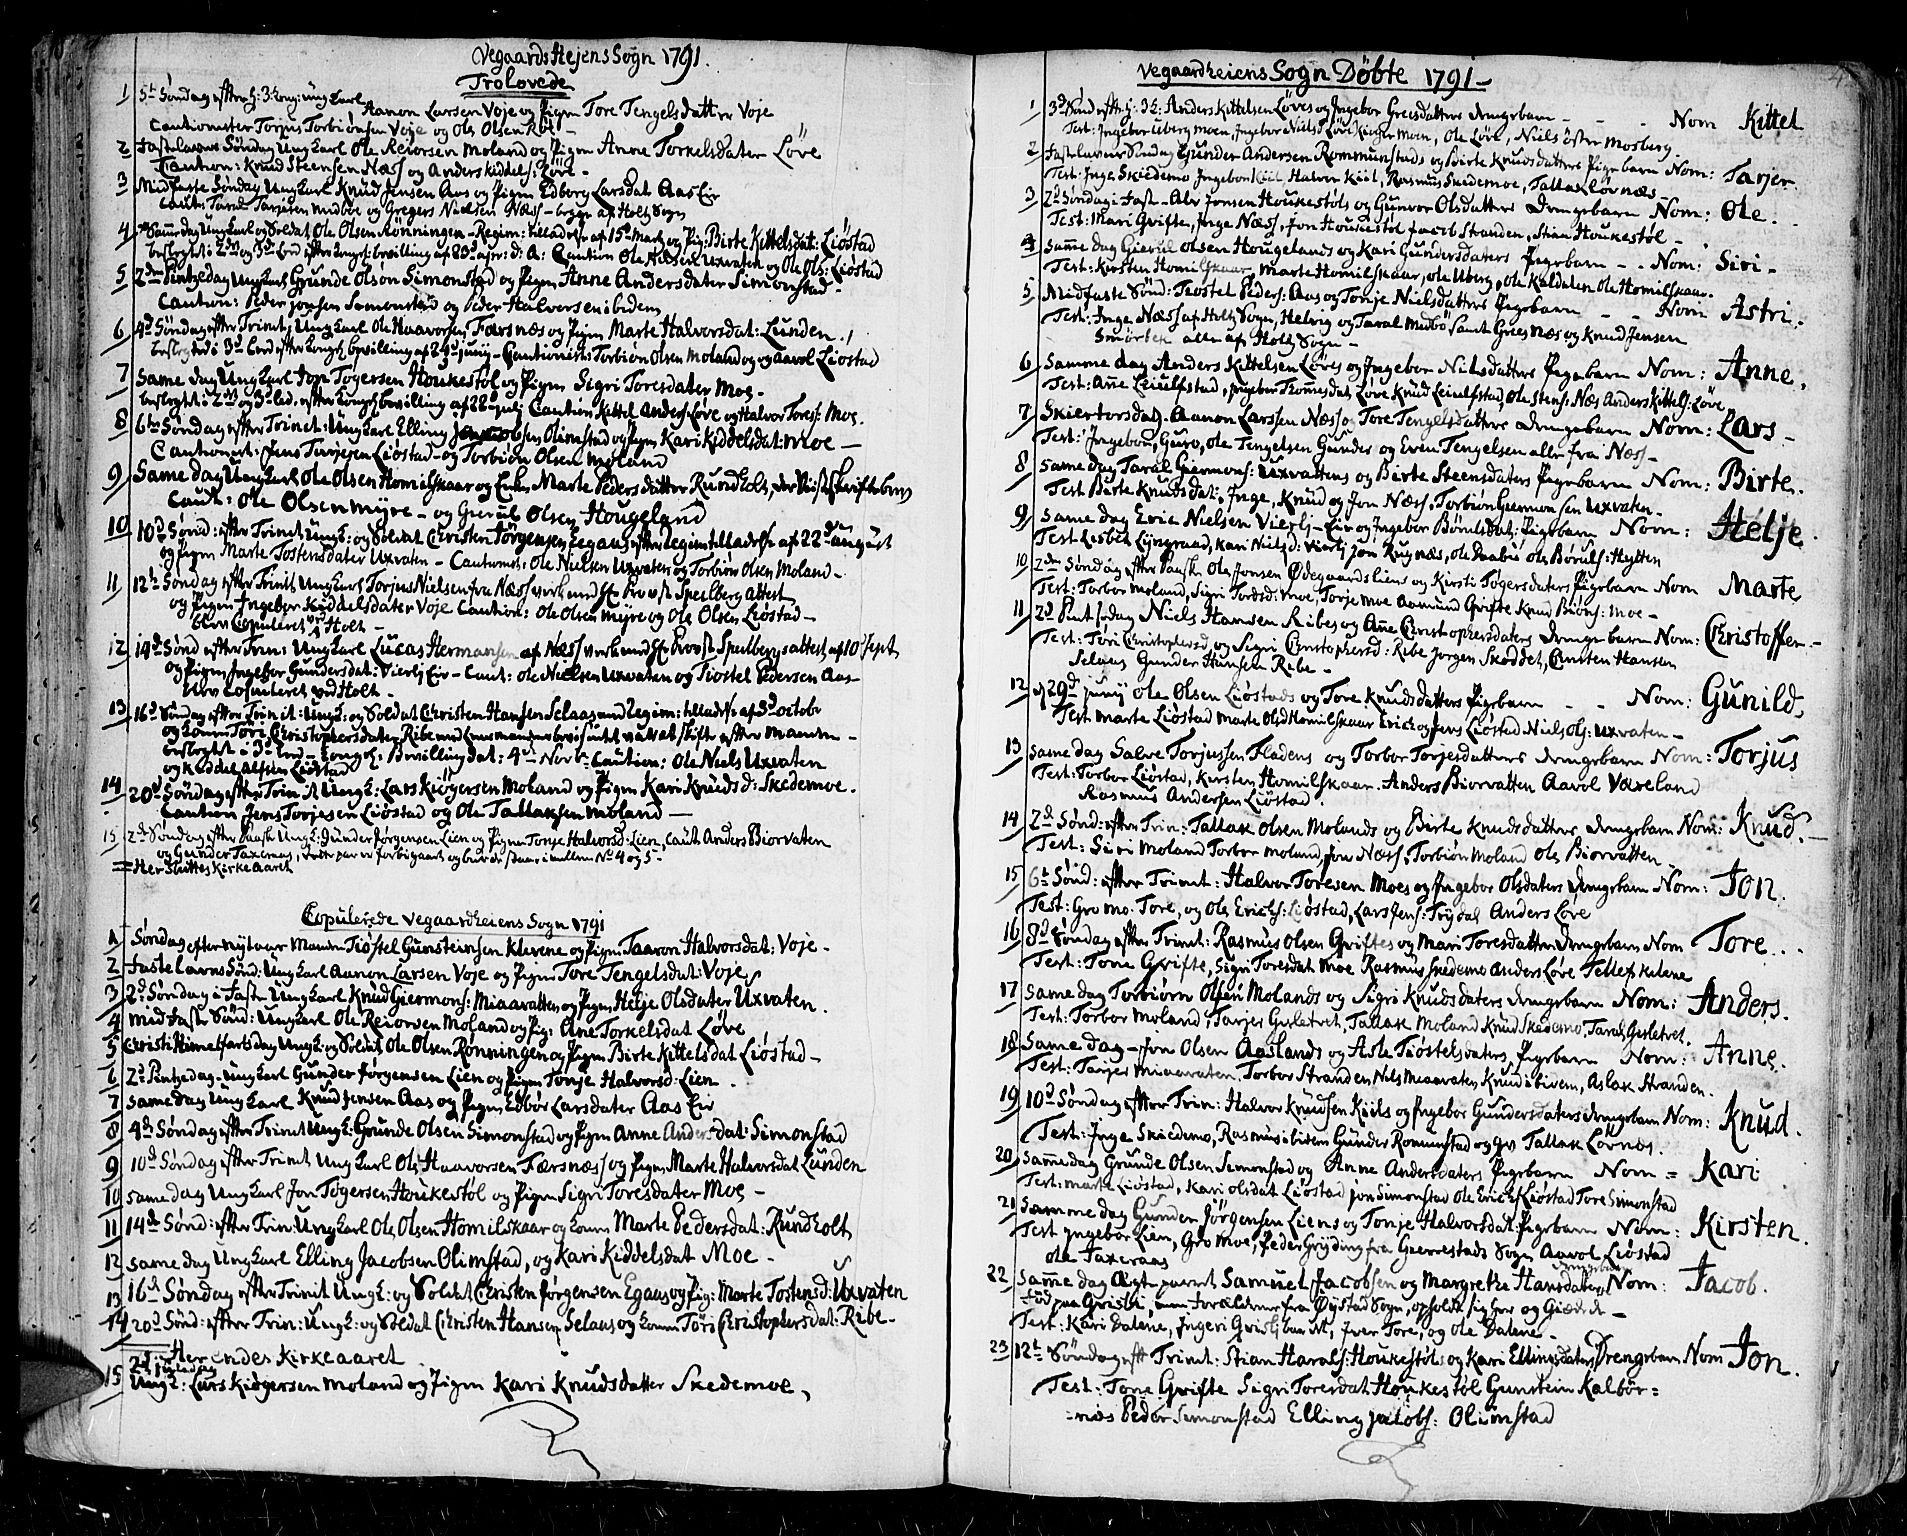 Vegaards Hejens Sogn 1791.
Trolovede
1 5te Søndag efter H: 3 Kong: ung karl Aanon Larsen Voje og Pigen Tore Tengelsdatter Voje
Cautionister Torjus Torbiørnsen Voje og Ole Olsen
2 Fastelavns Søndag Ung karl Ole Reiorsen Moland og Pigen Anne Torkelsdater Løve
Caution: Knud Steensen Næss og Anders Kiddels: Løve -
3 Midfaste Søndag Ung karl Knud Jensen Aas og Pigen Edberg Larsdat Aas Eir
Caut: Taral Tarjesen Midbøe og Gregers Nielsen Næss - begge af Holts Sogn
4 Søndag Ung karl og Soldat Ole Olsen Rønningen - Regim: tilladelse af 15de Marti og Pig: Birte Kittelsdat: Liøstad
Caution Ole Nielsen Uxvaten og Ole Ols: Liøstad
5 2den Pintzedag Ung karl Grunde Olsøn Simonstad og Pigen Anne Andersdater Simonstad -
Caution: Peder Jonsen Simonstad og Peder Halvorsen ibidem
6 4de Søndag efter Trinit: Ung karl Ole Haavorsen Færsnæs og Pigen Marte Halvorsdat: Lunden.
bevilling af 24de junij - Cautionister Torbiørn Olsen Moland og Aavol Liøstad
7 Same dag Ung karl Jon Togersen Houkestøl og Pigen Sigri Toresdater Moe -
bevilling af 22de julj Caution Kittel Anders: Løve og Halvor Tores: Moe.
8 6te Søndag efter Trinit: Ung karl Elling Jacobsen Olimstad og Pigen Kari Kiddelsdat: Moe -
Cautionist: Jens Tarjesen Liøstad - og Torbiørn Olsen Moland
9 Same dag Ung karl Ole Olsen Homilskaar og Enken Marte Pedersdatter Rundholt, der viiste skiftebrev
Caut: Ole Olsen Myre - og Gierul Olsen Hougeland
10 10de Sønd: efter Trinit Ung k: og Soldat Christen Jørgensen Egaas efter Regim: tilladelse af 22de august
og Pigen Marte Tostensdater Uxvaten - Cautionist: Ole Nielsen Uxvaten og Torbiørn Olsen Moland -
11 12te Søndag efter Trinit Ung karl Torjus Nielsen fra Næss verk med Hr Provst Speilberg Attest
og Pigen Ingebor Kiddelsdater Voje Caution: Ole Olsen Myre og Ole Olsen Liøstad -
blev Copuleret v: Holt -
12 14de Sønd efter Trin: Ung karl Lucas Hermansen af Næss verk med Hr Provst Speilbergs attest af 10de Sept
og Pigen Ingebor Gundersdat: Vierlj Eir - Caut: Ole Nielsen Uxvaten og Tiostel Pedersen Aas
blev Copuleret ved Holt -
13 16de Søndag efter Trinit: Ung k: og Soldat Christen Hansen Selaas med Regim: tilladelse af 3de octobr
og konen Tore Christophersdater Ribe med Lensmandens beviis intet var at skifte efter Manden -
Bevilling dat: 4de Novb - Caution: Ole Niels Uxvaten
og Kiddel Alfsen Liøstad
14 20de Søndag efter Trinit Ung k: Lars Kiøgersen Moland og Pigen Kari Knudsd: Skedemoe.
Caution Jens Torjesen Liøstad og Ole Tallaksen Moland -
15 2de Søndag efter Paaske Ung k: Gunder Jørgensen Lien og Pigen Tonje Halvorsd: Lien, Caut Anders Biorvaten
og Gunder Taxeraas, dette par er forbigaaet og burde staae imellem No 4 og 5 -
= Her Sluttes Kirke Aaret

Copulerede Vegaardheiens Sogn 1791
1 Søndag efter nytaar Manden Tiøstel Gunsteinsen Klevene og Pigen Taaron Halvorsdat: Voje -
2 Fastelavns Sønd: Ung karl Aanon Larsen Voje og Pigen Tore Tengelsdat: Voje
3 2de Søndag i Faste Ung karl Knud Giermons: Miaavatten og Pigen Helje Olsdater Uxvaten.
4 Midfaste Sønd: Ung karl Ole Reiorsen Moland og Pig: Ane Torkelsdat Løve
5 Christi Himelfarts dag Ung k: og Soldat Ole Olsen Rønningen og Pigen Birte Kittelsdat Liøstad -
6 2de Pintzedag - Ung karl Gunder Jørgensen Lien og Pigen Tonje Halvorsd: Lien.
7 Same dag Ung karl Knud Jensen Aas og Pigen Edbor Larsdater Aas Eir
8 4de Søndag efter Trinit Ung k: Grunde Olsen Simonstad og Pigen Anne Andersdat: Simonstad
9 10de Søndag efter Trinit Ung karl Ole Haavorsen Færsnæss og Pigen Marte Halvorsdat Lunden
10 Same dag Ung karl Jon Togersen Houkestøl og Pigen Sigri Toresdater Moe -
11 14de Sønd: efter Trin Ung karl Ole Olsen Homilskaar og konen Marte Pedersdat: Rundholt
12 Same dag Ung karl Elling Jacobsen Olimstad, og Kari Kiddelsdat Moe -
13 16de Søndag efter Trinit Ung k: og Soldat Christen Jørgensen Egaas og Pig: Marte Tostensd: Uxvaten
14 20de Sønd: efter Trin: Ung k: og Soldat Christen Hansen Selaas og konen Tore Christophersdat: Ribe -
Her endes Kirkeaaret
15 2de juledag
Ung k: Lars Kiøgersen Moland og Pigen Kari Knudsdatter Skedemoe,

Vegaardheiens Sogn Døbte 1791 -
1 3de Sønd: efter H: 3 K: Anders Kittelsen Løves og Ingebor Greesdatters drengebarn - - - Nom Kittel
Test: Ingebor Ueberg Moen, Ingebor Niels: Løve, Moen, Ole Løve, Niels Øster Mosberg
2 Fastelavns Søndag Gunder Andersen Rommunstads og Birte Knudsdatters Pigebarn Nom: Tarjer.
Test: Inge Skiedemo Ingebor Kiil, Halvor Kiil, Rasmus Skedemoe, Tallak Løvnæs -
3 2de Søndag i Faste - Alv Jonsen Houkestøls og Gunvor Olsdatters drengebarn Nom: Ole.
Test: Mari Grifte, Inge Næss, Jon Houkestøl Jacob Stranden, Stian Houkestøl -
4 Same dag Gierul Olsen Hougelands og Kari Gundersdaters Pigebarn - - Nom: Siri -
Test: Kirsten Homilskaar, Marte Homilskaar, Ole Uberg, Ole Kaldalen Ole Homilskaar.
5 Midfaste Sønd: Tiostel Peders: Aas og Tonje Nielsdatters Pigebarn - - Nom Astri.
Test: Inge Næss af Holts Sogn, Helvig og Taral Midbø samt Grees Næs og Knud Jensen
Smørten alle af Holts Sogn -
6 Samme dag Anders Kittelsen Løves og Ingebor Nilsdatters Pigebarn Nom: Anne.
Test: Ane Leiulfstad, Ingebor Tommesdat, Løve Knud Leiulfstad, Ole Stens: Næs Anders Kittels: Løve
7 Skiertorsdag. Aanon Larssen Næss og Tore Tengelsdatters drengebarn Nom: Lars -
Test: Ingebor, Guro, Ole Tengelsen Gunder og Even Tengelsen alle fra Næss -
8 Same dag Taral Giermons: Uxvattens og Birte Steensdaters Pigebarn Nom: Birte.
Test Birte Knudsdat:, Inge, Knud og Jon Næss, Torbiørn Giermonsen Uxvaten -
9 Same dag Eric Nielsen Vierlj - Eir og Ingebor Børulsdat: Pigebarn Nom: Helje.
Test Lisbet Lyngraad, Kari Nielsd: Vierlj Jon Rugnæs, Ole Daabu Ole Børuls: Heften
10 2den Søndag efter Paaske Ole Jonsen Ødegaardsliens og Kirsti Togersdaters Pigebarn Nom Marte
Test: Torbor Moland, Sigri Toresd: Moe, Torje Moe Aamund Grifte Knud Biøns: Moe -
11 2de Pintsedag Niels Hansen Ribes og Ane Christophersdaters drengebarn Nom: Christoffer -
Test: Tore Christophersd og Sigri Christophersd: Ribe Jørgen Skøddet, Christen Hansen
Selaas Gunder Hansen Ribe -
12 29de junij Ole Olsen Liøstads og Tore Knudsdatters Pigebarn - - Nom: Gunild,
Test Marte Liøstad Marte Olsd Homilskaar Erich og Jens Liøstad Niels Ols: Uxvaten -
13 Same dag Salve Torjussen Fladens og Torbor Torjesdatters drengebarn Nom: Torjus
Test: Torbor Liøstad, Kirsten Homilskaar. Anders Biorvatten Aavol Væreland
Rasmus Andersen Liøstad.
14 2de Sønd: efter Trin: Tallak Olsen Molands og Birte Knudsdatters drengebarn Nom: Knud. -
Test: Siri Moland Torbor Moland, Jon Næss, Torbiørn Moland Ole Biorvatten -
15 6te Sønd: efter Trinit: Halvor Toresen Moes og Ingebor Olsdaters drengebarn Nom: Jon.
Test: Gro Mo. Tore, og Ole Erichs: Liøstad, Lars Jens: Trydal Anders Løve
16 8de Søndag efter Trinit: Rasmus Olsen Griftes og Mari Toresdatters drengebarn Nom Tore..
Test: Tone Grifte, Sigri Toresdat Moe Rasmus Skedemo Anders Løve Tellef Kulene
17 Same dag Torbiørn Olsen Molands og Sigri Knudsdaters drengebarn Nom: Anders.
Test: Torbor Moland, Tarjer Gerletret, Tallak Moland Knud Skedemo, Taral Gerletret.
18 Same dag - Jon Olsen Aaslands og Asle Tiøstelsdaters Pigebarn Nom: Anne.
Test: Tarjer Miaavaten. Torbor Stranden Nils Miaavaten Knud ibidem, Aslak Stranden.
19 10de Søndag efter Trin: Halvor Knudsen Kiils og Ingebor Gundersdaters drengebarn Nom: Knud.
Test: Inge Skiedemo, Rasmus ibidem Gunder Romunstad og Tallak Løvnæs.
20 Samedag Grunde Olsen Simonstad og Anne Andersdaters Pigebarn Nom = Kari
Test: Marte Liøstad, Kari Olsdat Liøstad Jon Simonstad Ole Erichs Liøstad Tore Simonstad
21 Samme dag Gunder Jørgensen Liens og Tonje Halvorsdat: Pigebarn Nom: Kirsten.
Test Ingebor Lien, Gro Moe, Peder Gryding fra Gierrestads Sogn Aavol Liøstad
Ole Taxeraas
22 Same dag Ægte parret Samuel Jacobsen og Margrethe Hansdaters drengebarn Nom: Jacob.
fød paa Grislj, men Forældrene fra Øystad Sogn, opholde sig her og Giæde -
Test: Kari Dalene, Ingeri Grislj, Iver Tore, og Ole Dalene -
23 12te Søndag eft Trinit: Stian Harals: Houkestøls og Kari Ellingsdaters Drengebarn Nom Jon.
Test: Tone Grifte Sigri Toresdat Houkestøl Gunstein Kalbør=
=næs Peder Simonstad Elling Jacobs: Olimstad